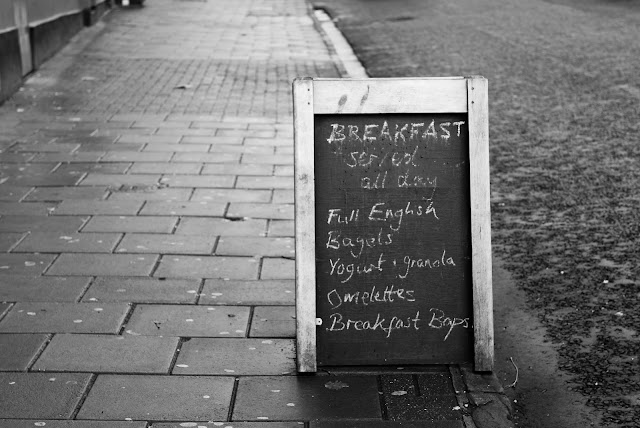 BREAKFAST
served
all day
Full English
Bagels
Yogurt + granola
Omelettes
Breakfast Baps.